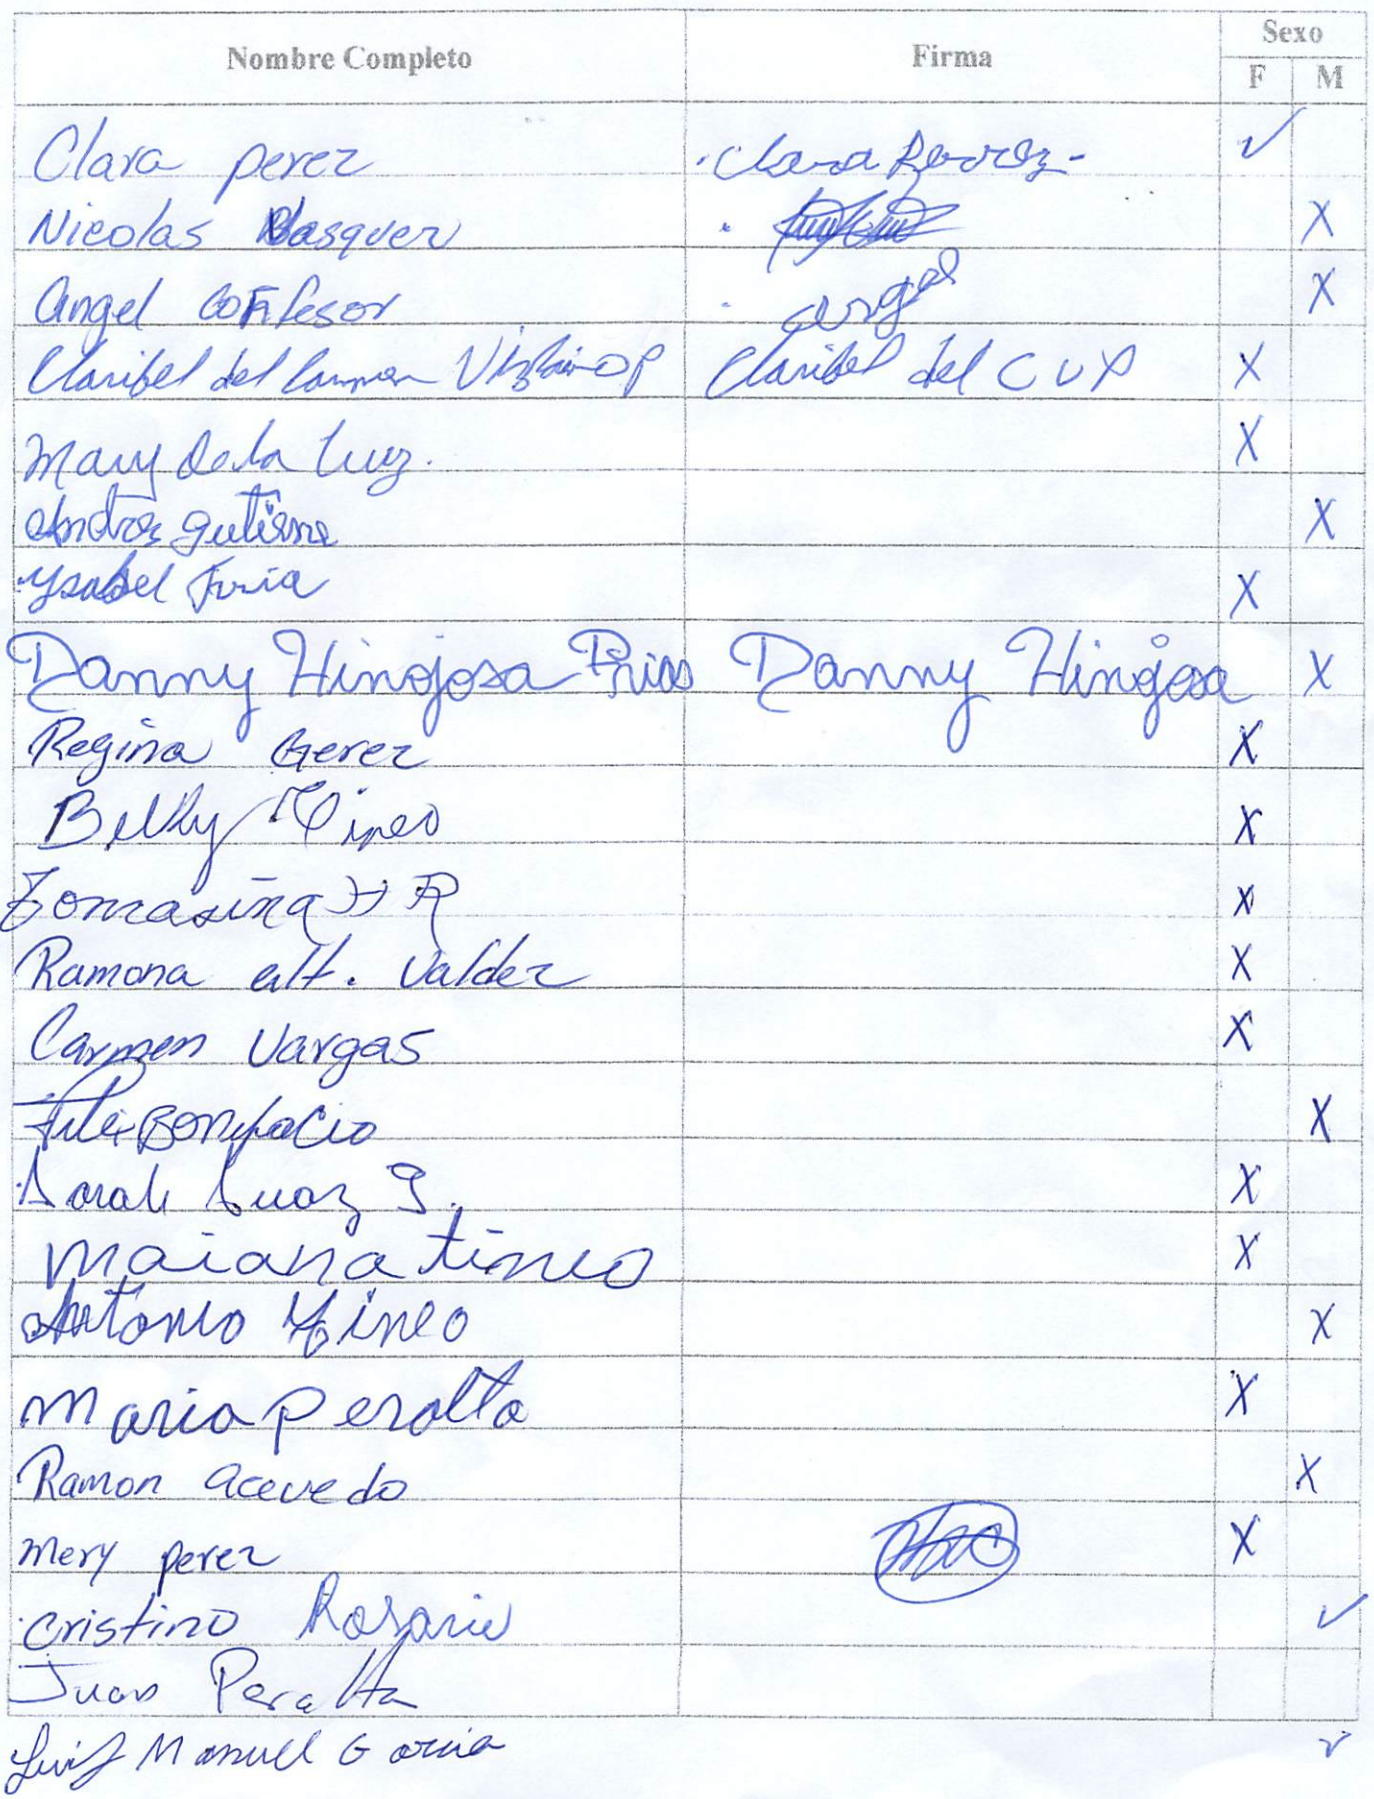 Nombre Completo Firma Sexo
F M
Clara perez Clara Perez ✓
Nicolas Vasquez X
Angel Confesor angel X
Claribel del Carmen Vizcaino P Claribel del C V P X
Mary De la Luz. X
Andres gutierre X
Ysabel Furia X
Danny Hinojosa Frias Danny Hinojosa X
Regina Gerez X
Belky Tineo X
Tomasina H R X
Ramona alt. Valdez X
Carmen Vargas X
Bonifacio X
Sarah Suaz G. X
Maiana tineo X
Antonio Tineo X
Maria Peralta X
Ramon acevedo X
Mery perez X
Cristino Rosario ✓
Juan Peralta
Luis Manuel Garcia ✓